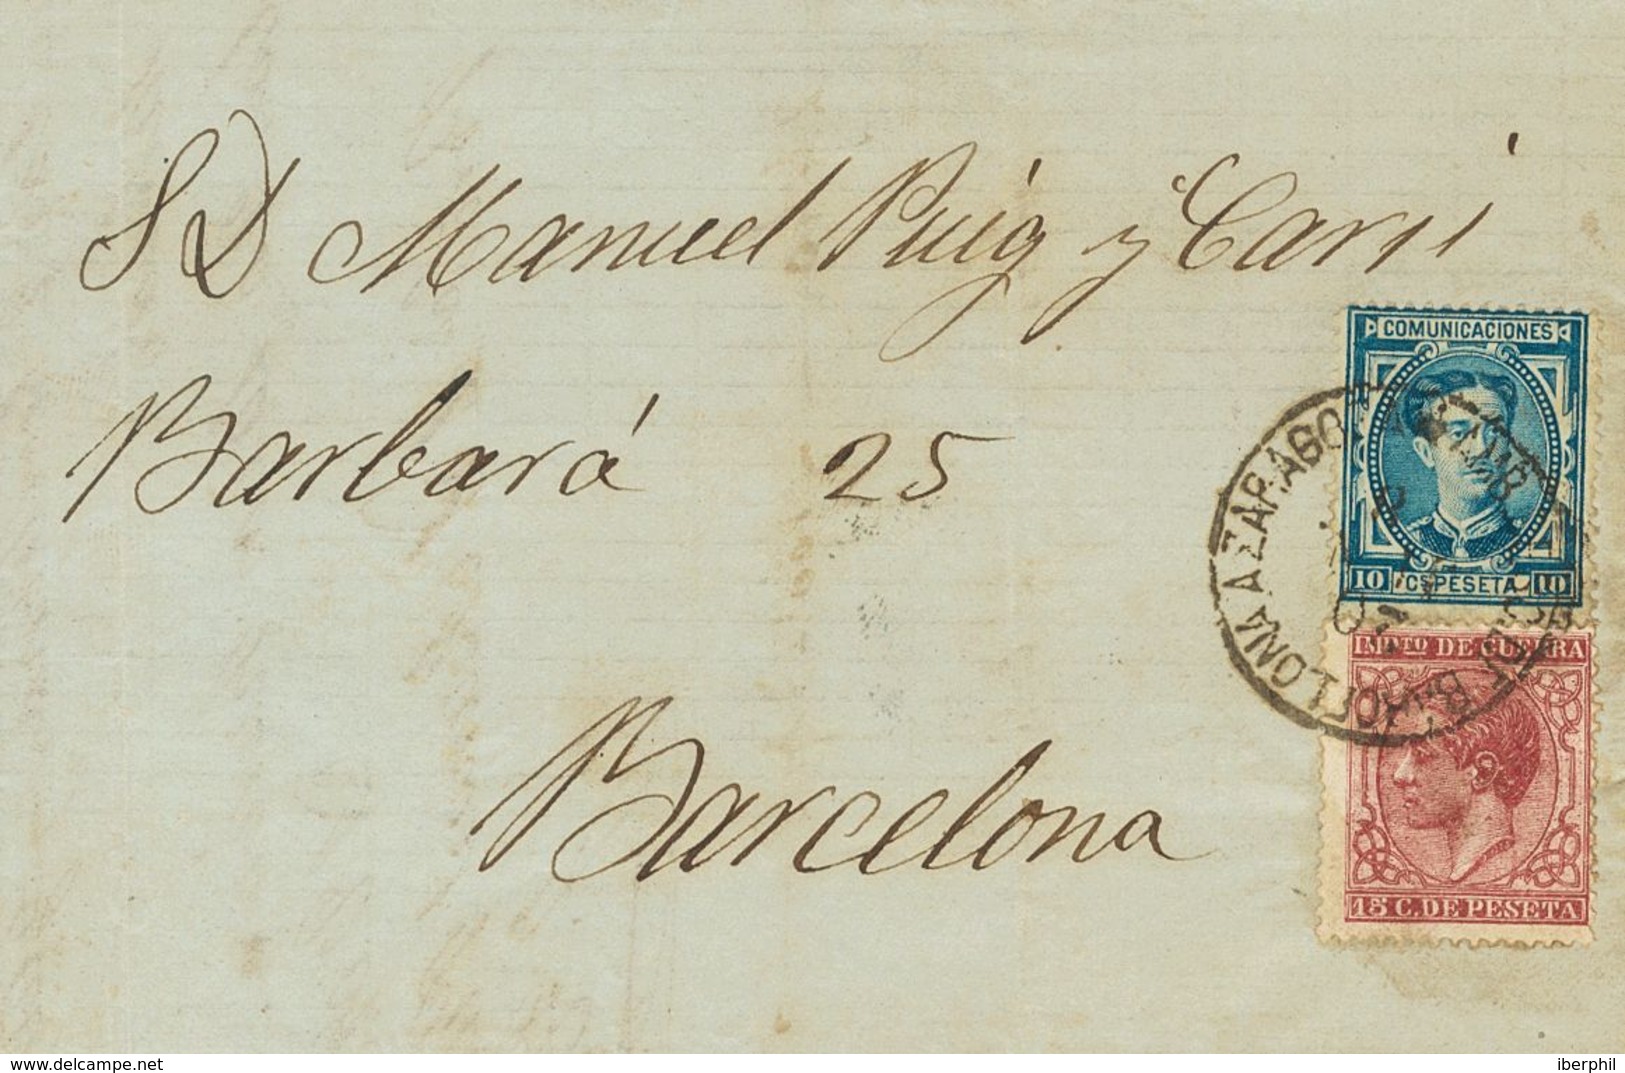 SD Manuel Puig y Carsí
Barbará 25
Barcelona
COMUNICACIONES
10 CS PESETA 10
IMPTO DE GUERRA
15 C. DE PESETA
BARCELONA A ZARAGO
www.delcampe.net
iberphil